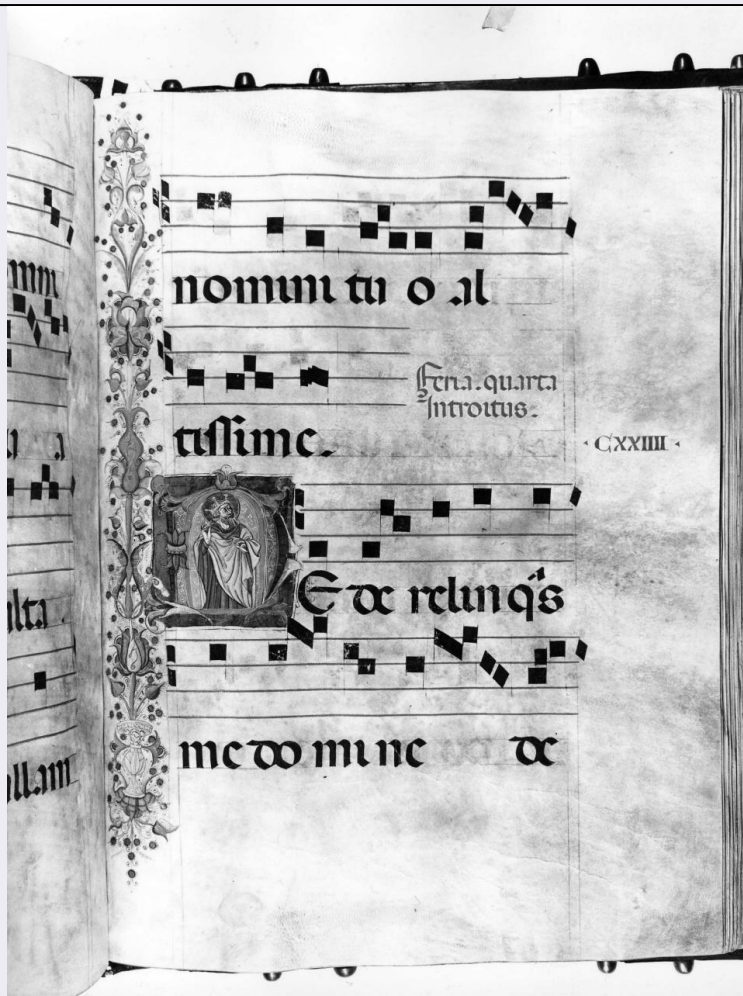 nomini tu o al
Feria. quarta
Introitus.
tissime.
CXXIIII
NE de relinq̄s
me do mi ne de
mm
a
ulta
ullam